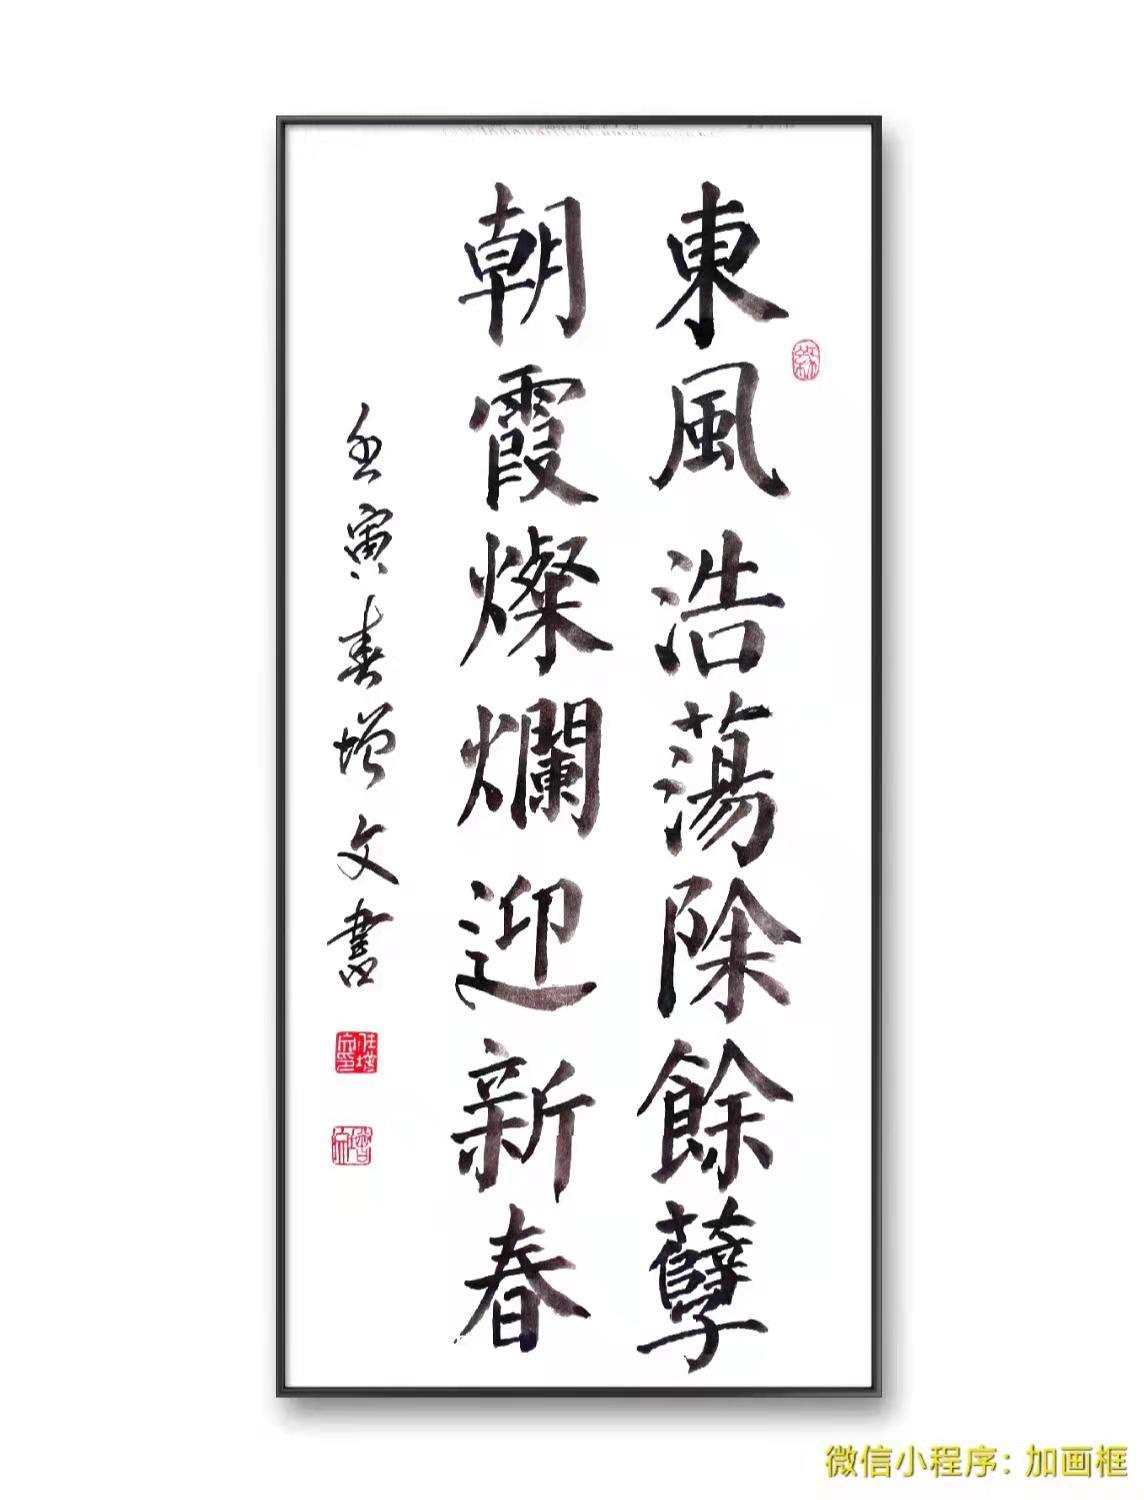 東風浩蕩除餘孽
朝霞燦爛迎新春
壬寅春增文書
微信小程序：加画框